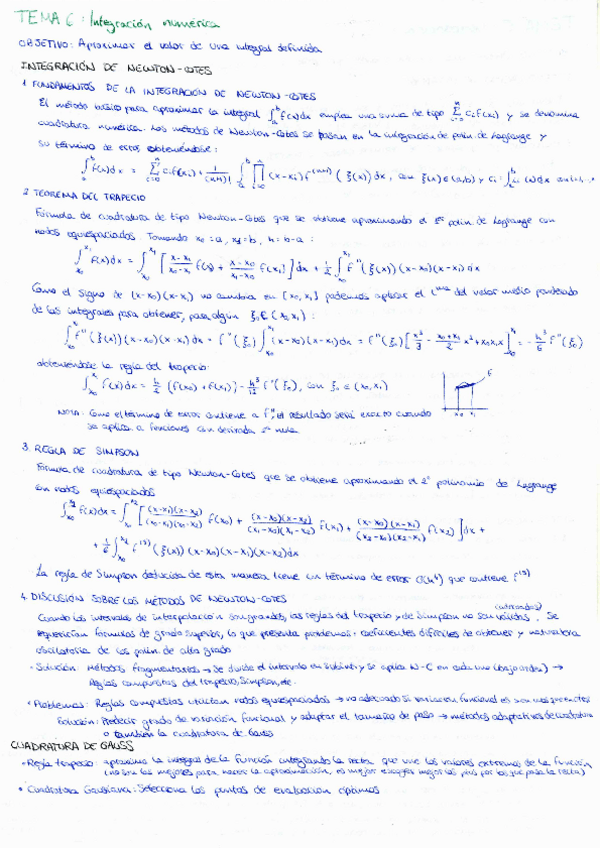 TEMA 6: Integración numérica
OBJETIVO: Aproximar el valor de una integral definida
INTEGRACIÓN DE NEWTON-COTES
1. FUNDAMENTOS DE LA INTEGRACIÓN DE NEWTON-COTES
El método básico para aproximar la integral ∫_a^b f(x)dx emplea una suma de tipo Σ_{i=0}^n c_i f(x_i) y se denomina
cuadratura numérica. Los métodos de Newton-Cotes se basan en la integración de polin. de Lagrange y
su término de error obteniéndose:
∫_a^b f(x)dx = Σ_{i=0}^n c_i f(x_i) + 1/(n+1)! ∫_a^b Π_{i=0}^n (x-x_i) f^(n+1) (ξ(x)) dx, con ξ(x) ∈ (a,b) y c_i =
2. TEOREMA DEL TRAPECIO
Fórmula de cuadratura de tipo Newton-Cotes que se obtiene aproximando el 1er polin. de Lagrange con
nodos equiespaciados. Tomando x0=a, x1=b, h=b-a:
∫_{x0}^{x1} f(x)dx = ∫_{x0}^{x1} [ (x-x1)/(x0-x1) f(x0) + (x-x0)/(x1-x0) f(x1) ] dx + 1/2 ∫_{x0}^{x1} f''(ξ(x))(x-x0)(x-x1) dx
Como el signo de (x-x0)(x-x1) no cambia en [x0,x1] podemos aplicar el del valor medio ponderado
de las integrales para obtener, para algún ξ ∈ (x0,x1):
∫_{x0}^{x1} f''(ξ(x))(x-x0)(x-x1)dx = f''(ξ) ∫_{x0}^{x1} (x-x0)(x-x1)dx = f''(ξ) [ x³/3 - (x0+x1)/2 x² + x0x1x ]_{x0}^{x1} = -h³/6 f''(ξ)
obteniéndose la regla del trapecio:
∫_{x0}^{x1} f(x)dx = h/2 (f(x0)+f(x1)) - h³/12 f''(ξ), con ξ ∈ (x0,x1)
NOTA: Como el término de error contiene a f'', el resultado será exacto cuando
se aplica a funciones con derivada 2ª nula
f
x0 x1
3. REGLA DE SIMPSON
Fórmula de cuadratura de tipo Newton-Cotes que se obtiene aproximando el 2º polinomio de Lagrange
con nodos equiespaciados
∫_{x0}^{x2} f(x)dx = ∫_{x0}^{x2} [ (x-x1)(x-x2)/(x0-x1)(x0-x2) f(x0) + (x-x0)(x-x2)/(x1-x0)(x1-x2) f(x1) + (x-x0)(x-x1)/(x2-x0)(x2-x1) f(x2) ] dx +
+ 1/6 ∫_{x0}^{x2} f^(3) (ξ(x)) (x-x0)(x-x1)(x-x2)dx
La regla de Simpson deducida de esta manera tiene un término de error O(h⁴) que contiene f^(3)
4. DISCUSIÓN SOBRE LOS MÉTODOS DE NEWTON-COTES
Cuando los intervalos de interpolación son grandes, las reglas del trapecio y de Simpson no son válidas. Se
requerirían fórmulas de grado superior, lo que presenta problemas: coeficientes difíciles de obtener y naturaleza
oscilatoria de los polin. de alto grado
· Solución: Métodos fragmentarios → Se divide el intervalo en subint. y se aplica N-C en cada uno (bajo orden) →
Reglas compuestas del trapecio, Simpson, etc.
· Problemas: Reglas compuestas utilizan nodos equiespaciados → no adecuado si variación funcional es
Solución: Predecir grado de variación funcional y adaptar el tamaño de paso → métodos adaptativos de cuadratura
o también la cuadratura de Gauss
CUADRATURA DE GAUSS
· Regla trapecio: aproxima la integral de la función integrando la recta que une los valores extremos de la función
(no son los mejores para hacer la aproximación, es mejor escoger mejor los por los que pasa la recta)
· Cuadratura Gaussiana: Selecciona los puntos de evaluación óptimos